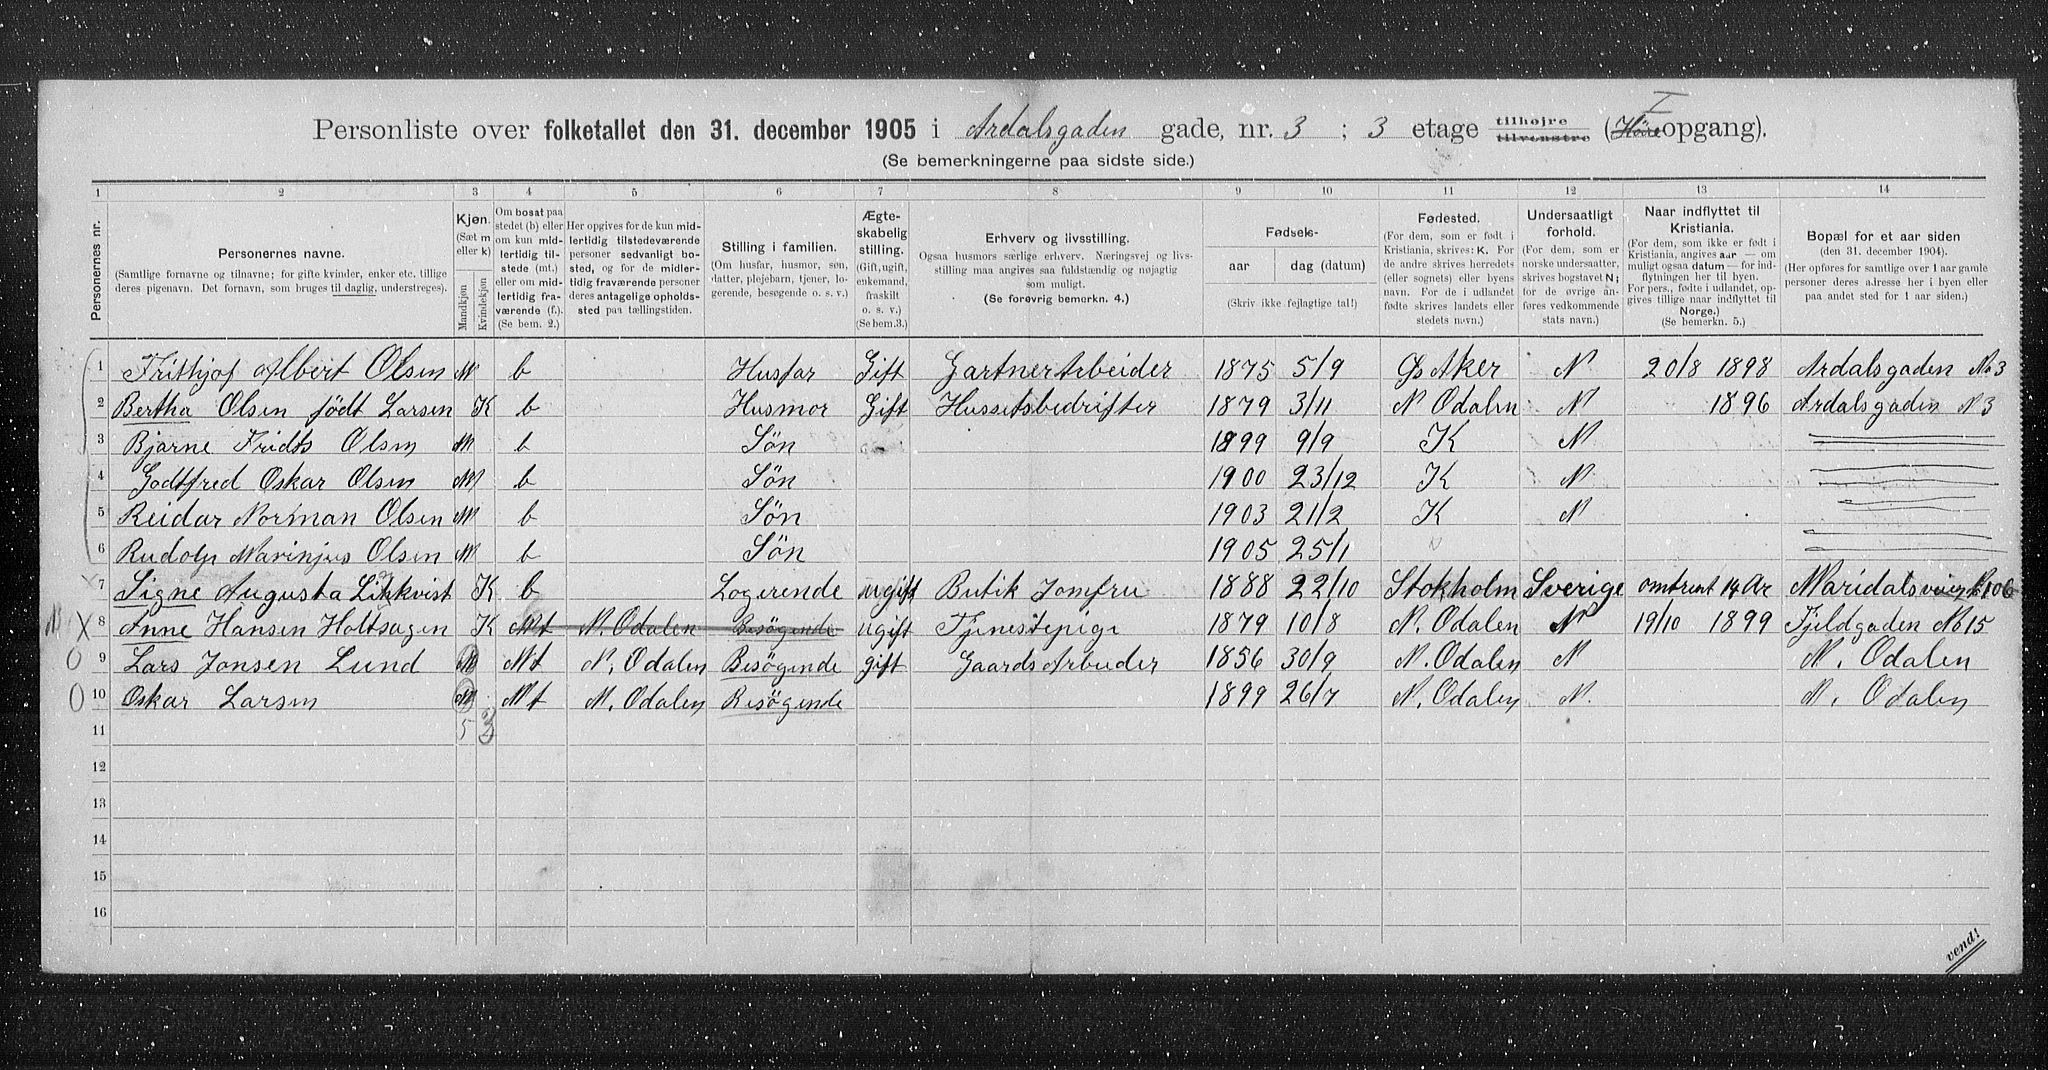 Personliste over folketallet den 31. december 1905 i Ardalsgaden gade, nr. 3 ; 3 etage tilhøjre tilvenstre (I opgang).
(Se bemerkningerne paa sidste side.)
1 2 3 4 5 6 7 8 9 10 11 12 13 14
Personernes nr.
Personernes navne.
(Samtlige fornavne og tilnavne; for gifte kvinder, enker etc. tillige
deres pigenavn. Det fornavn, som bruges til daglig, understreges).
Kjøn.
(Sæt m
eller k)
Mandkjøn
Kvindekjøn
Om bosat paa
stedet (b) eller
om kun mid-
lertidig til-
stede (mt.)
eller om mid-
lertidig fra-
værende (f.).
(Se bem. 2.)
Her opgives for de kun mid-
lertidig tilstedeværende
personer sedvanlig bo-
sted, og for de midler-
tidig fraværende personer
deres antagelige opholds-
sted paa tællingstiden.
Stilling i familien.
(Om husfar, husmor, søn,
datter, plejebarn, tjener, lo-
gerende, besøgende o. s. v.)
Ægte-
skabelig
stilling.
(Gift, ugift,
enkemand,
fraskilt
o. s. v.)
(Se bem.3.)
Erhverv og livsstilling.
Ogsaa husmors særlige erhverv. Næringsvej og livs-
stilling maa angives saa fuldstændig og nøjagtig
som muligt.
(Se forøvrig bemerkn. 4.)
Fødsels-
aar
dag (datum)
(Skriv ikke fejlagtige tal!)
Fødested.
(For dem, som er født i
Kristiania, skrives: K. For
de andre skrives herredets
(eller sognets) eller byens
navn. For de i udlandet
fødte skrives landets eller
stedets navn.)
Undersaatligt
forhold.
(For dem, som er
norske undersaatter,
skrives bogstavet N;
for de øvrige an-
føres vedkommende
stats navn.)
Naar indflyttet til
Kristiania.
(For dem, som ikke er født i
Kristiania, angives aar — om
muligt ogsaa datum — for ind-
flytningen her til byen.
For pers., fødte i udlandet, op-
gives tillige naar indflyttet til
Norge.)
(Se bemerkn. 5.)
Bopæl for et aar siden
(den 31. december 1904).
(Her opføres for samtlige over 1 aar gamle
personer deres adresse her i byen eller
paa andet sted for 1 aar siden.)
1 Frithjof Albert Olsen M b Husfar Gift Gartner Arbeider 1875 5/9 Ø Aker N 20/8 1898 Ardalsgaden No 3
2 Bertha Olsen født Larsen K b Husmor Gift Hussetsbedrifter 1879 3/11 N Odalen N 1896 Ardalsgaden N 3
3 Bjarne Fridts Olsen M b Søn 1899 9/9 K N
4 Godtfred Oskar Olsen M b Søn 1900 23/12 K N
5 Reidar Norman Olsen M b Søn 1903 21/2 K N
6 Rudolp Marinjus Olsen M b Søn 1905 25/1
7 Signe Augusta Linkvist K b Logerende ugift Butik Jomfru 1888 22/10 Stokholm Sverige omtrent 14 Ar Maridalsveien 106
X 8 Anne Hansen Holtsagen K Mt N. Odalen Besøgende ugift Tjenestepige 1879 10/8 N. Odalen N 19/10 1899 Fjeldgaden No 15
0 9 Lars Jonsen Lund M Mt N. Odalen Besøgende gift Gaards Arbeider 1856 30/9 N. Odalen N N. Odalen
0 10 Oskar Larsen M Mt N. Odalen Besøgende 1899 26/7 N. Odalen N. N. Odalen
11 5 3
12
13
14
15
16
vend!